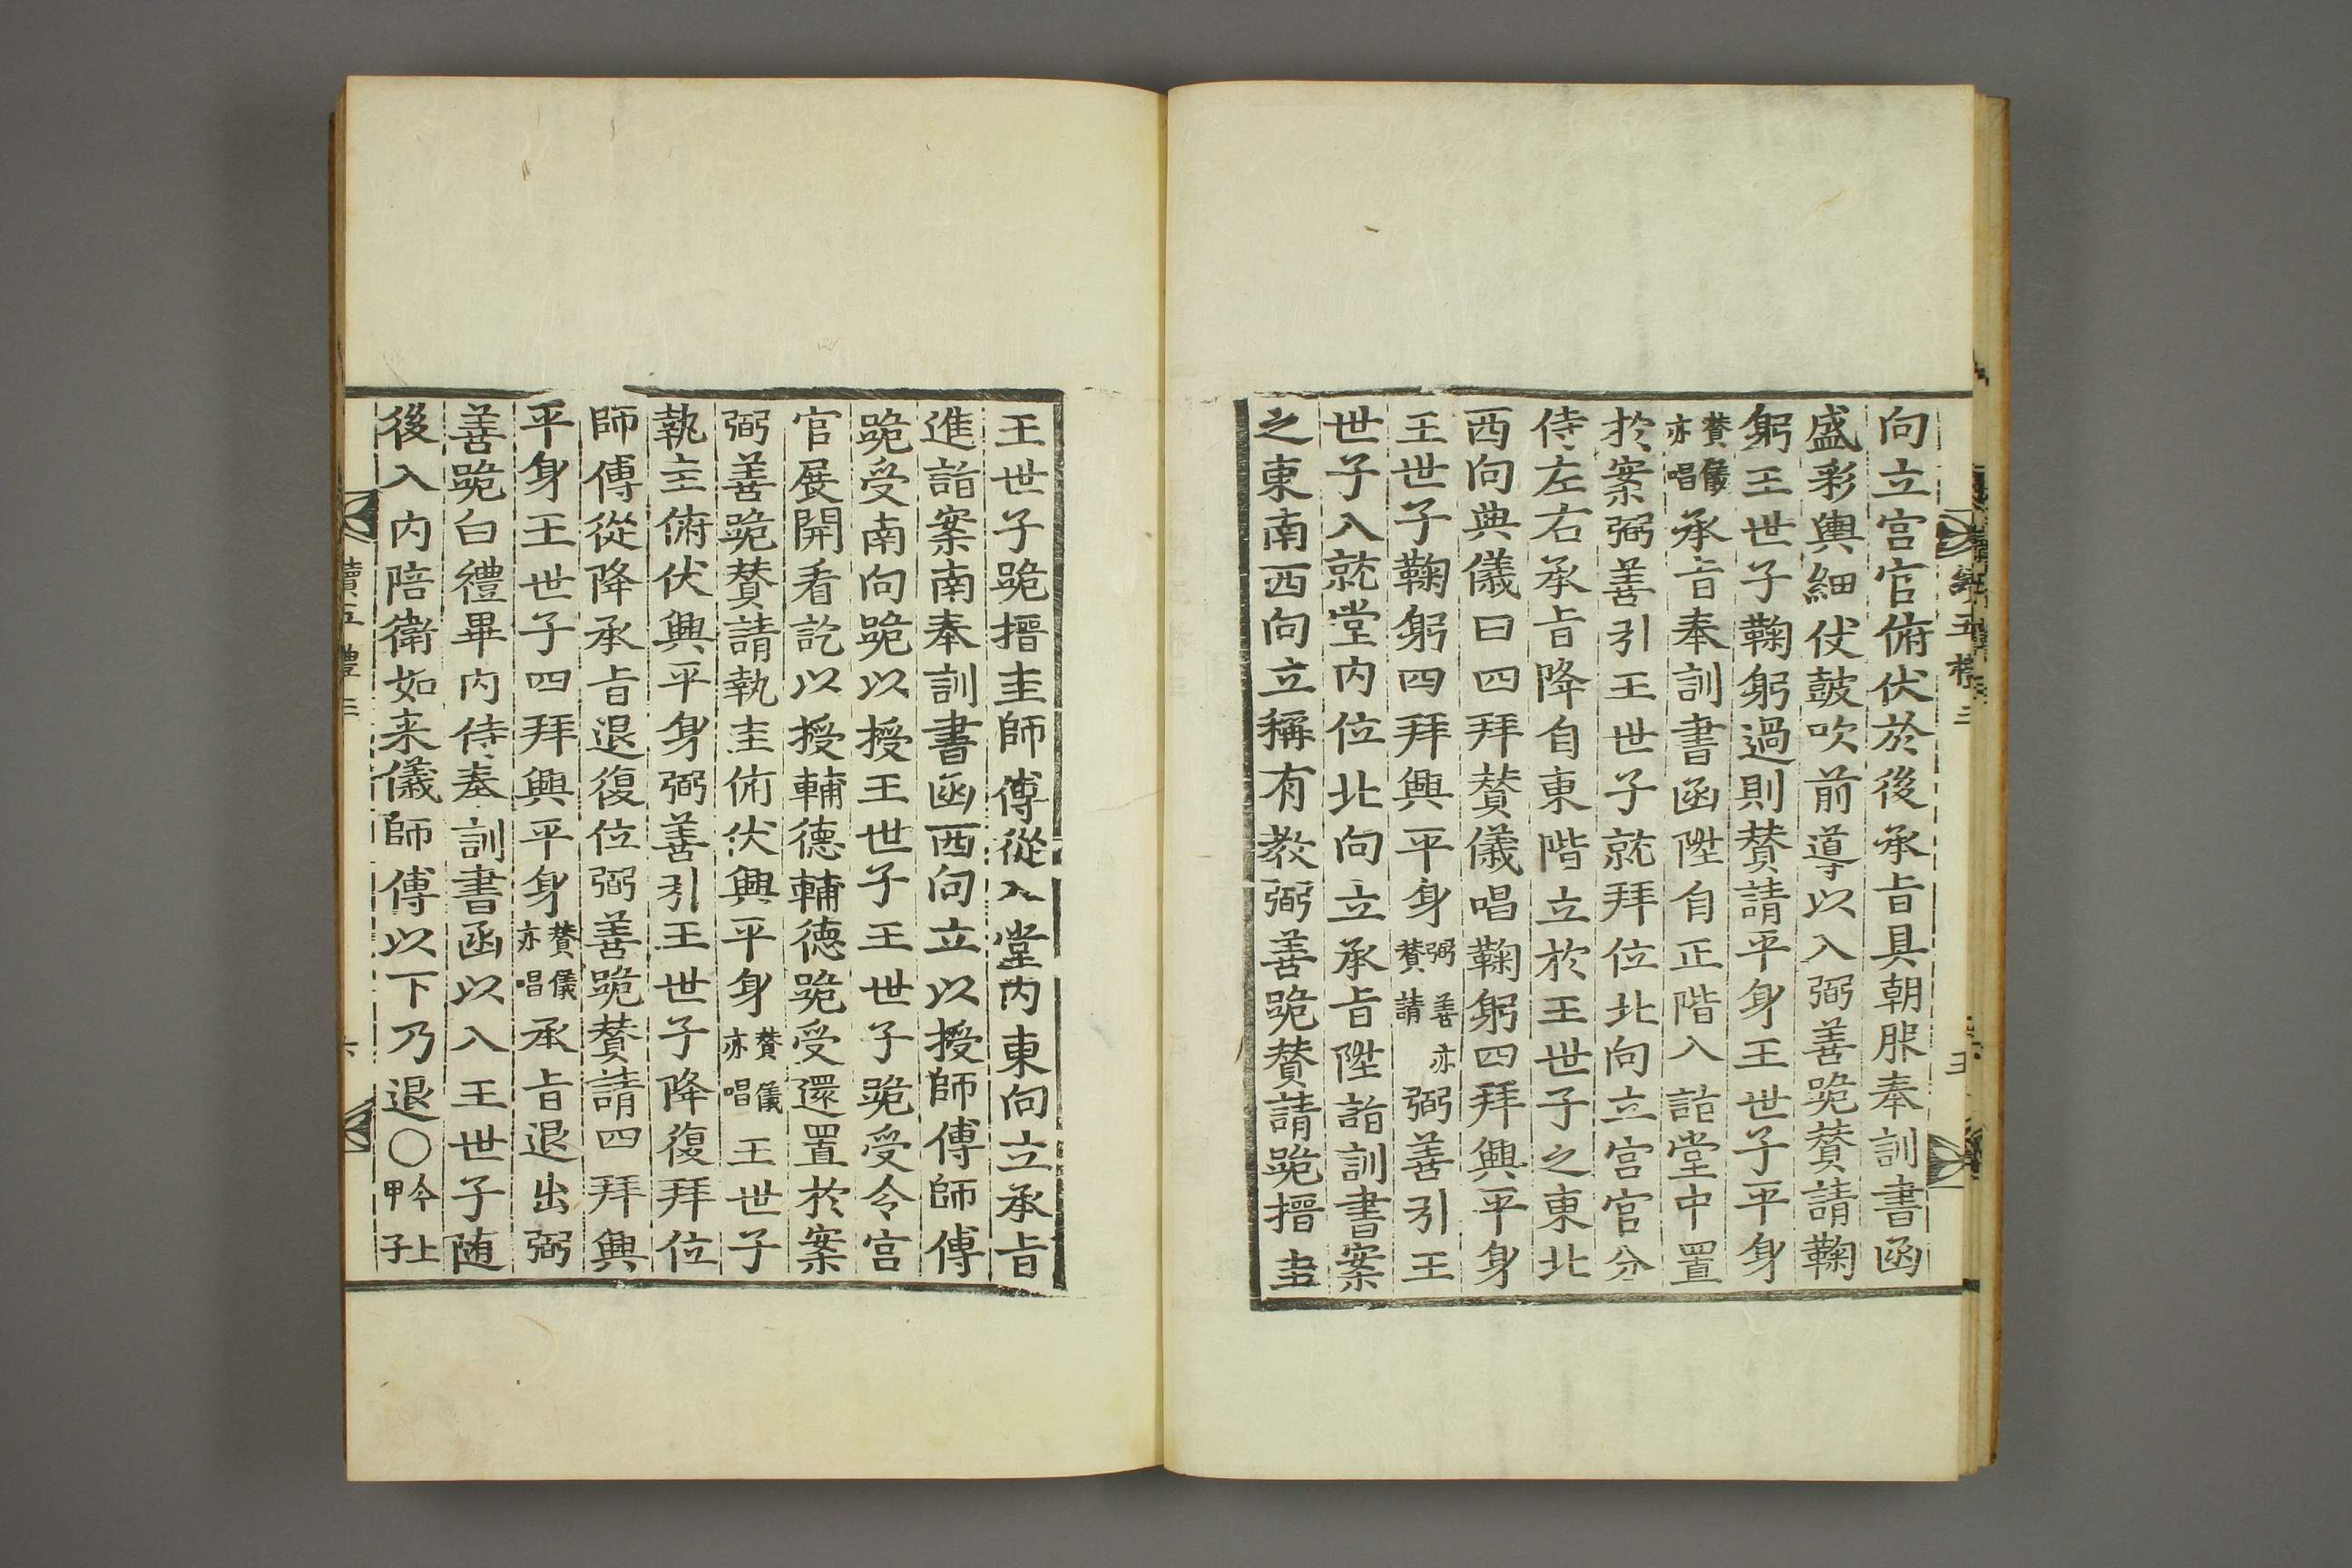 向立宮官俯伏於後承旨具朝服奉訓書函
盛彩輿細仗鼓吹前導以入弼善跪賛請鞠
躬王世子鞠躬過則賛請平身王世子平身
賛儀亦唱承旨奉訓書函陞自正階入詣堂中置
於案弼善引王世子就拜位北向立宮官分
侍左右承旨降自東階立於王世子之東北
西向典儀曰四拜賛儀唱鞠躬四拜興平身
王世子鞠躬四拜興平身弼善亦賛請弼善引王
世子入就堂內位北向立承旨陞詣訓書案
之東南西向立稱有教弼善跪賛請跪搢圭
王世子跪搢圭師傅從入堂內東向立承旨
進詣案南奉訓書函西向立以授師傅師傅
跪受南向跪以授王世子王世子跪受令宮
官展開看訖以授輔德輔德跪受還置於案
弼善跪賛請執圭俯伏興平身賛儀亦唱王世子
執圭俯伏興平身弼善引王世子降復拜位
師傅從降承旨退復位弼善跪賛請四拜興
平身王世子四拜興平身賛儀亦唱承旨退出弼
善跪白禮畢內侍奉訓書函以入王世子随
後入內陪衛如来儀師傅以下乃退○今上甲子
續五禮三